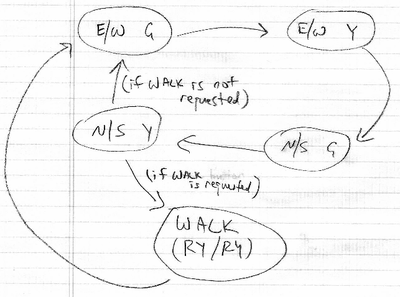 E/W G
E/W Y
(if WALK is not
requested)
N/S Y
N/S G
(if WALK
is requested)
WALK
(RY/RY)